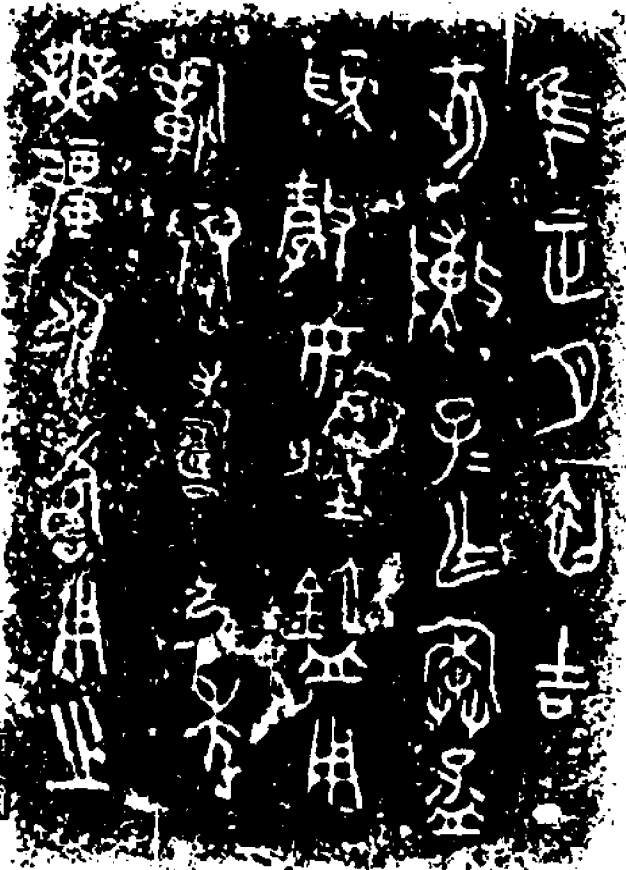 隹正月初吉丁
亥陳子=乍孟
媯母用
眉壽萬年
無疆永壽用之